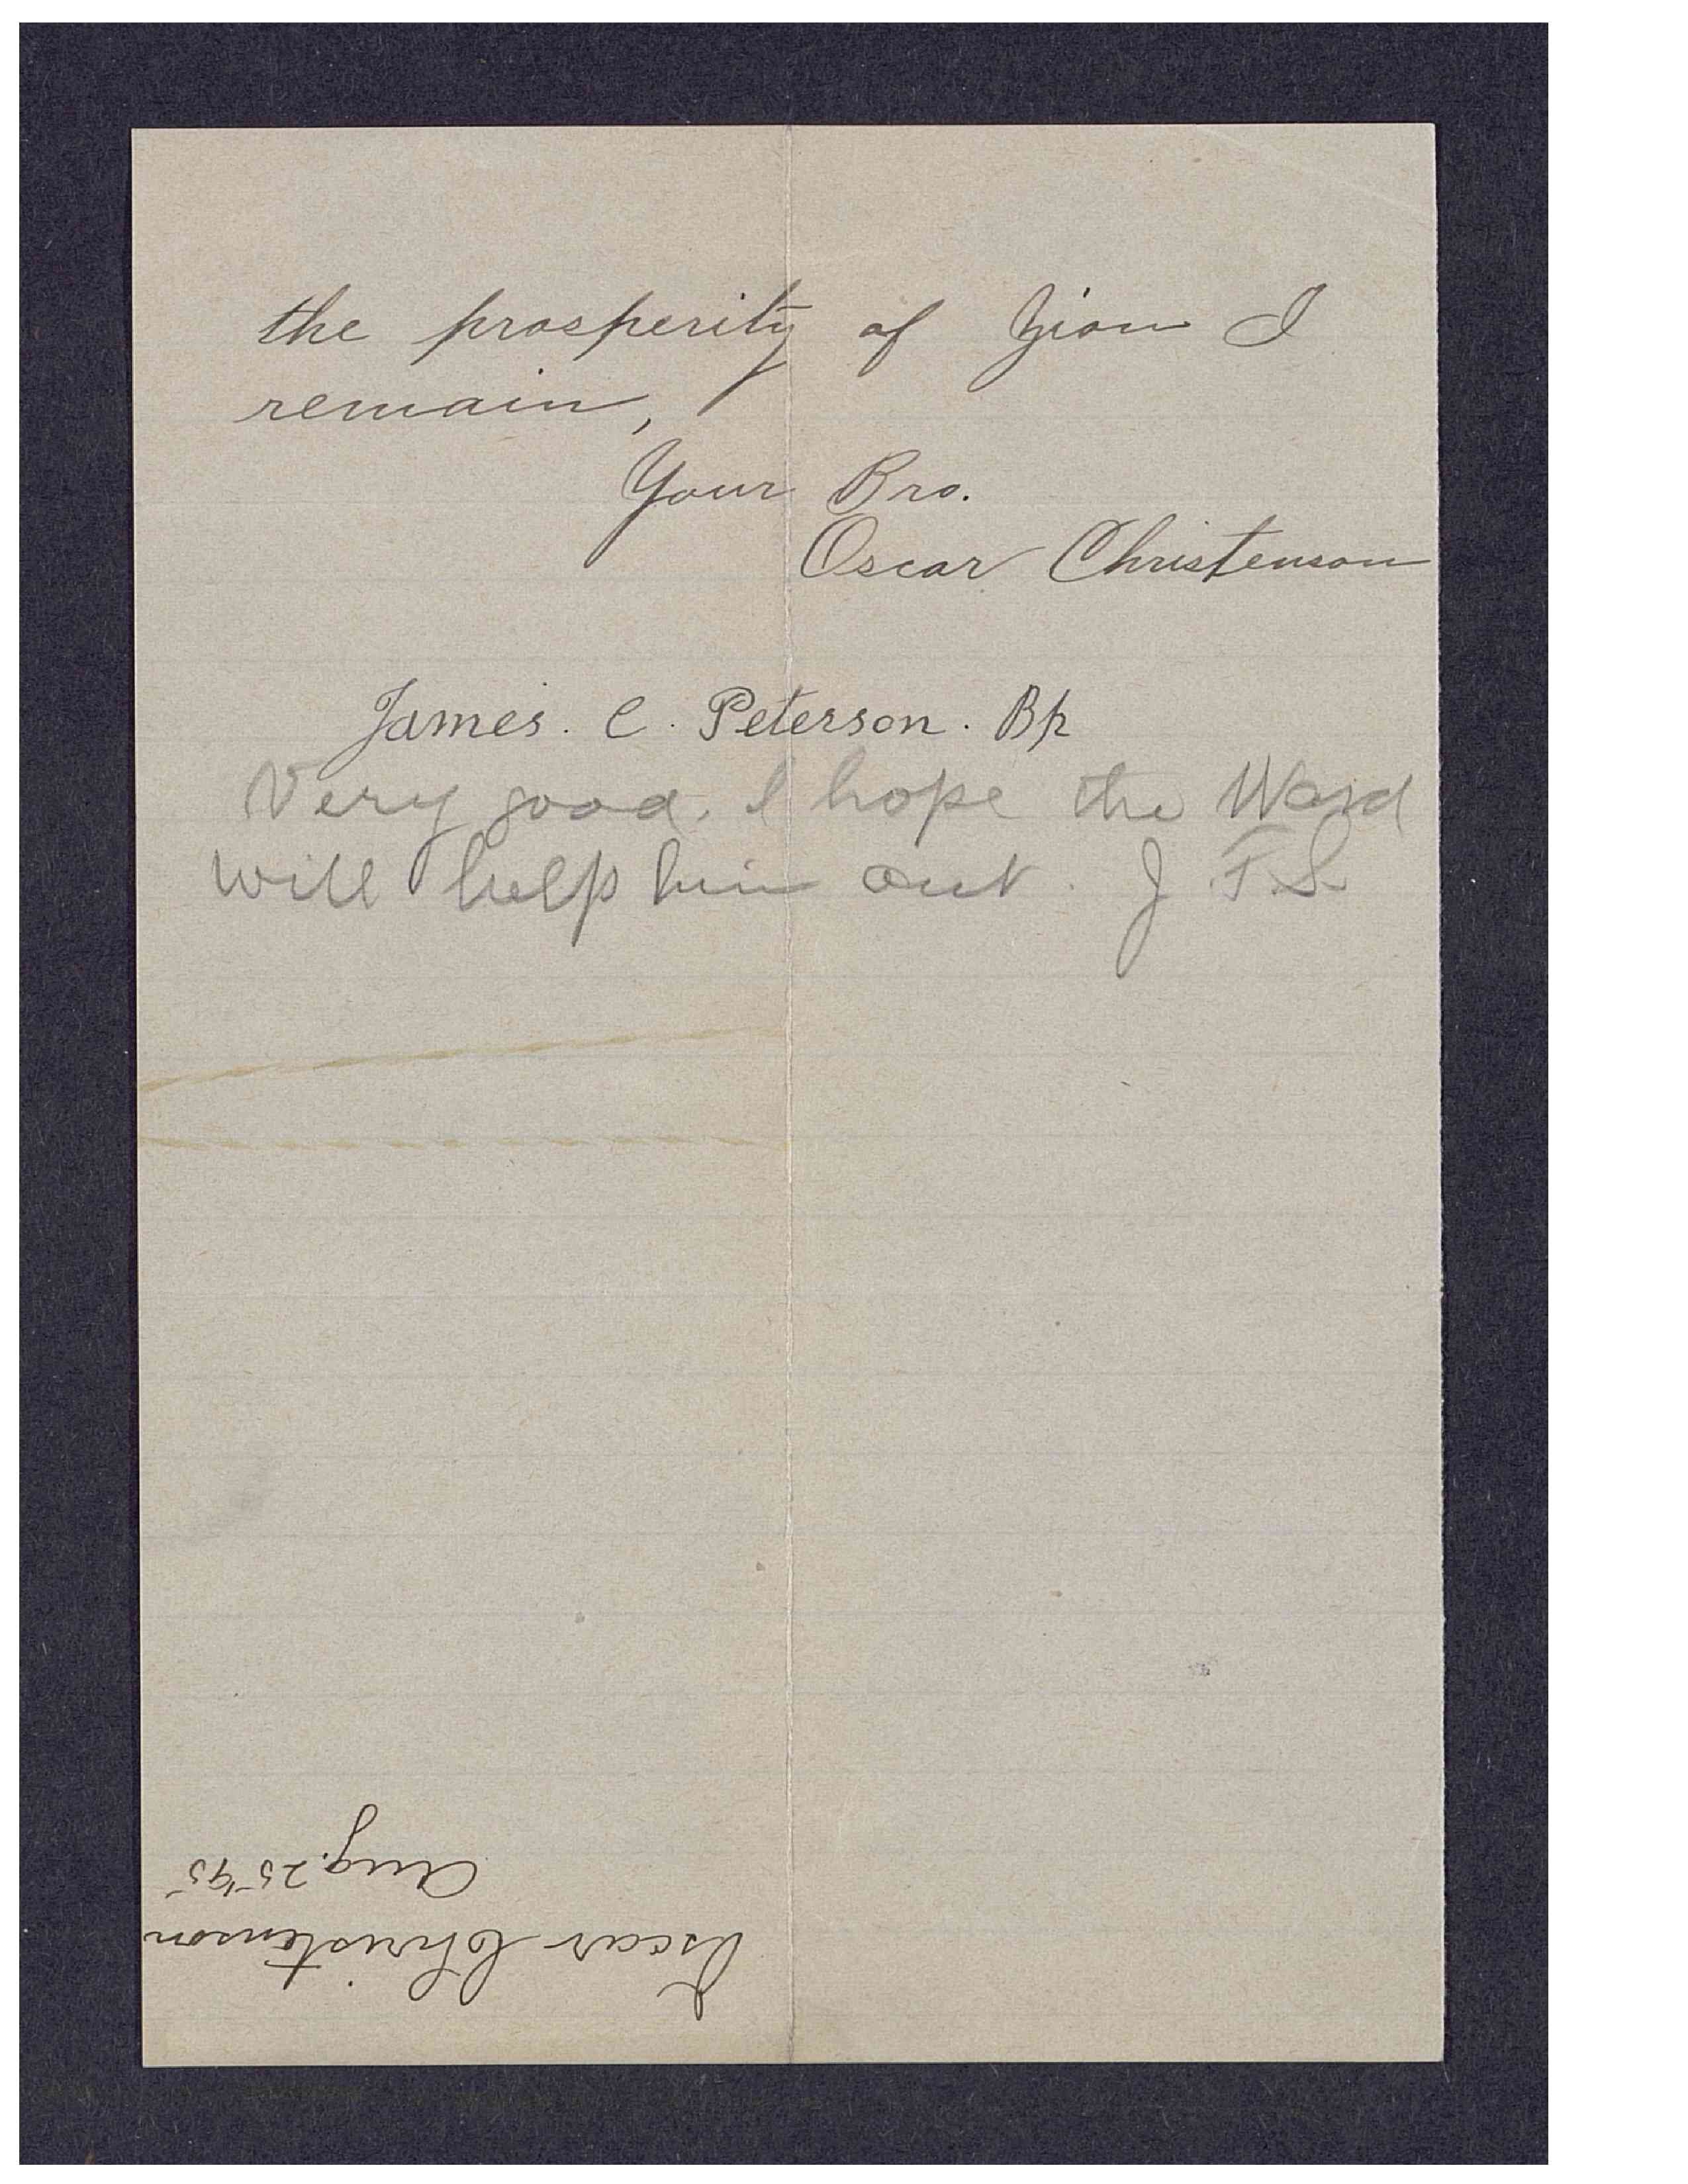 the prosperity of Zion I
remain,
Your Bro.
Oscar Christenson
James. C. Peterson. Bp
Very good. I hope the Ward
will help him out. J. F. S.
Oscar Christenson
Aug. 25 '95